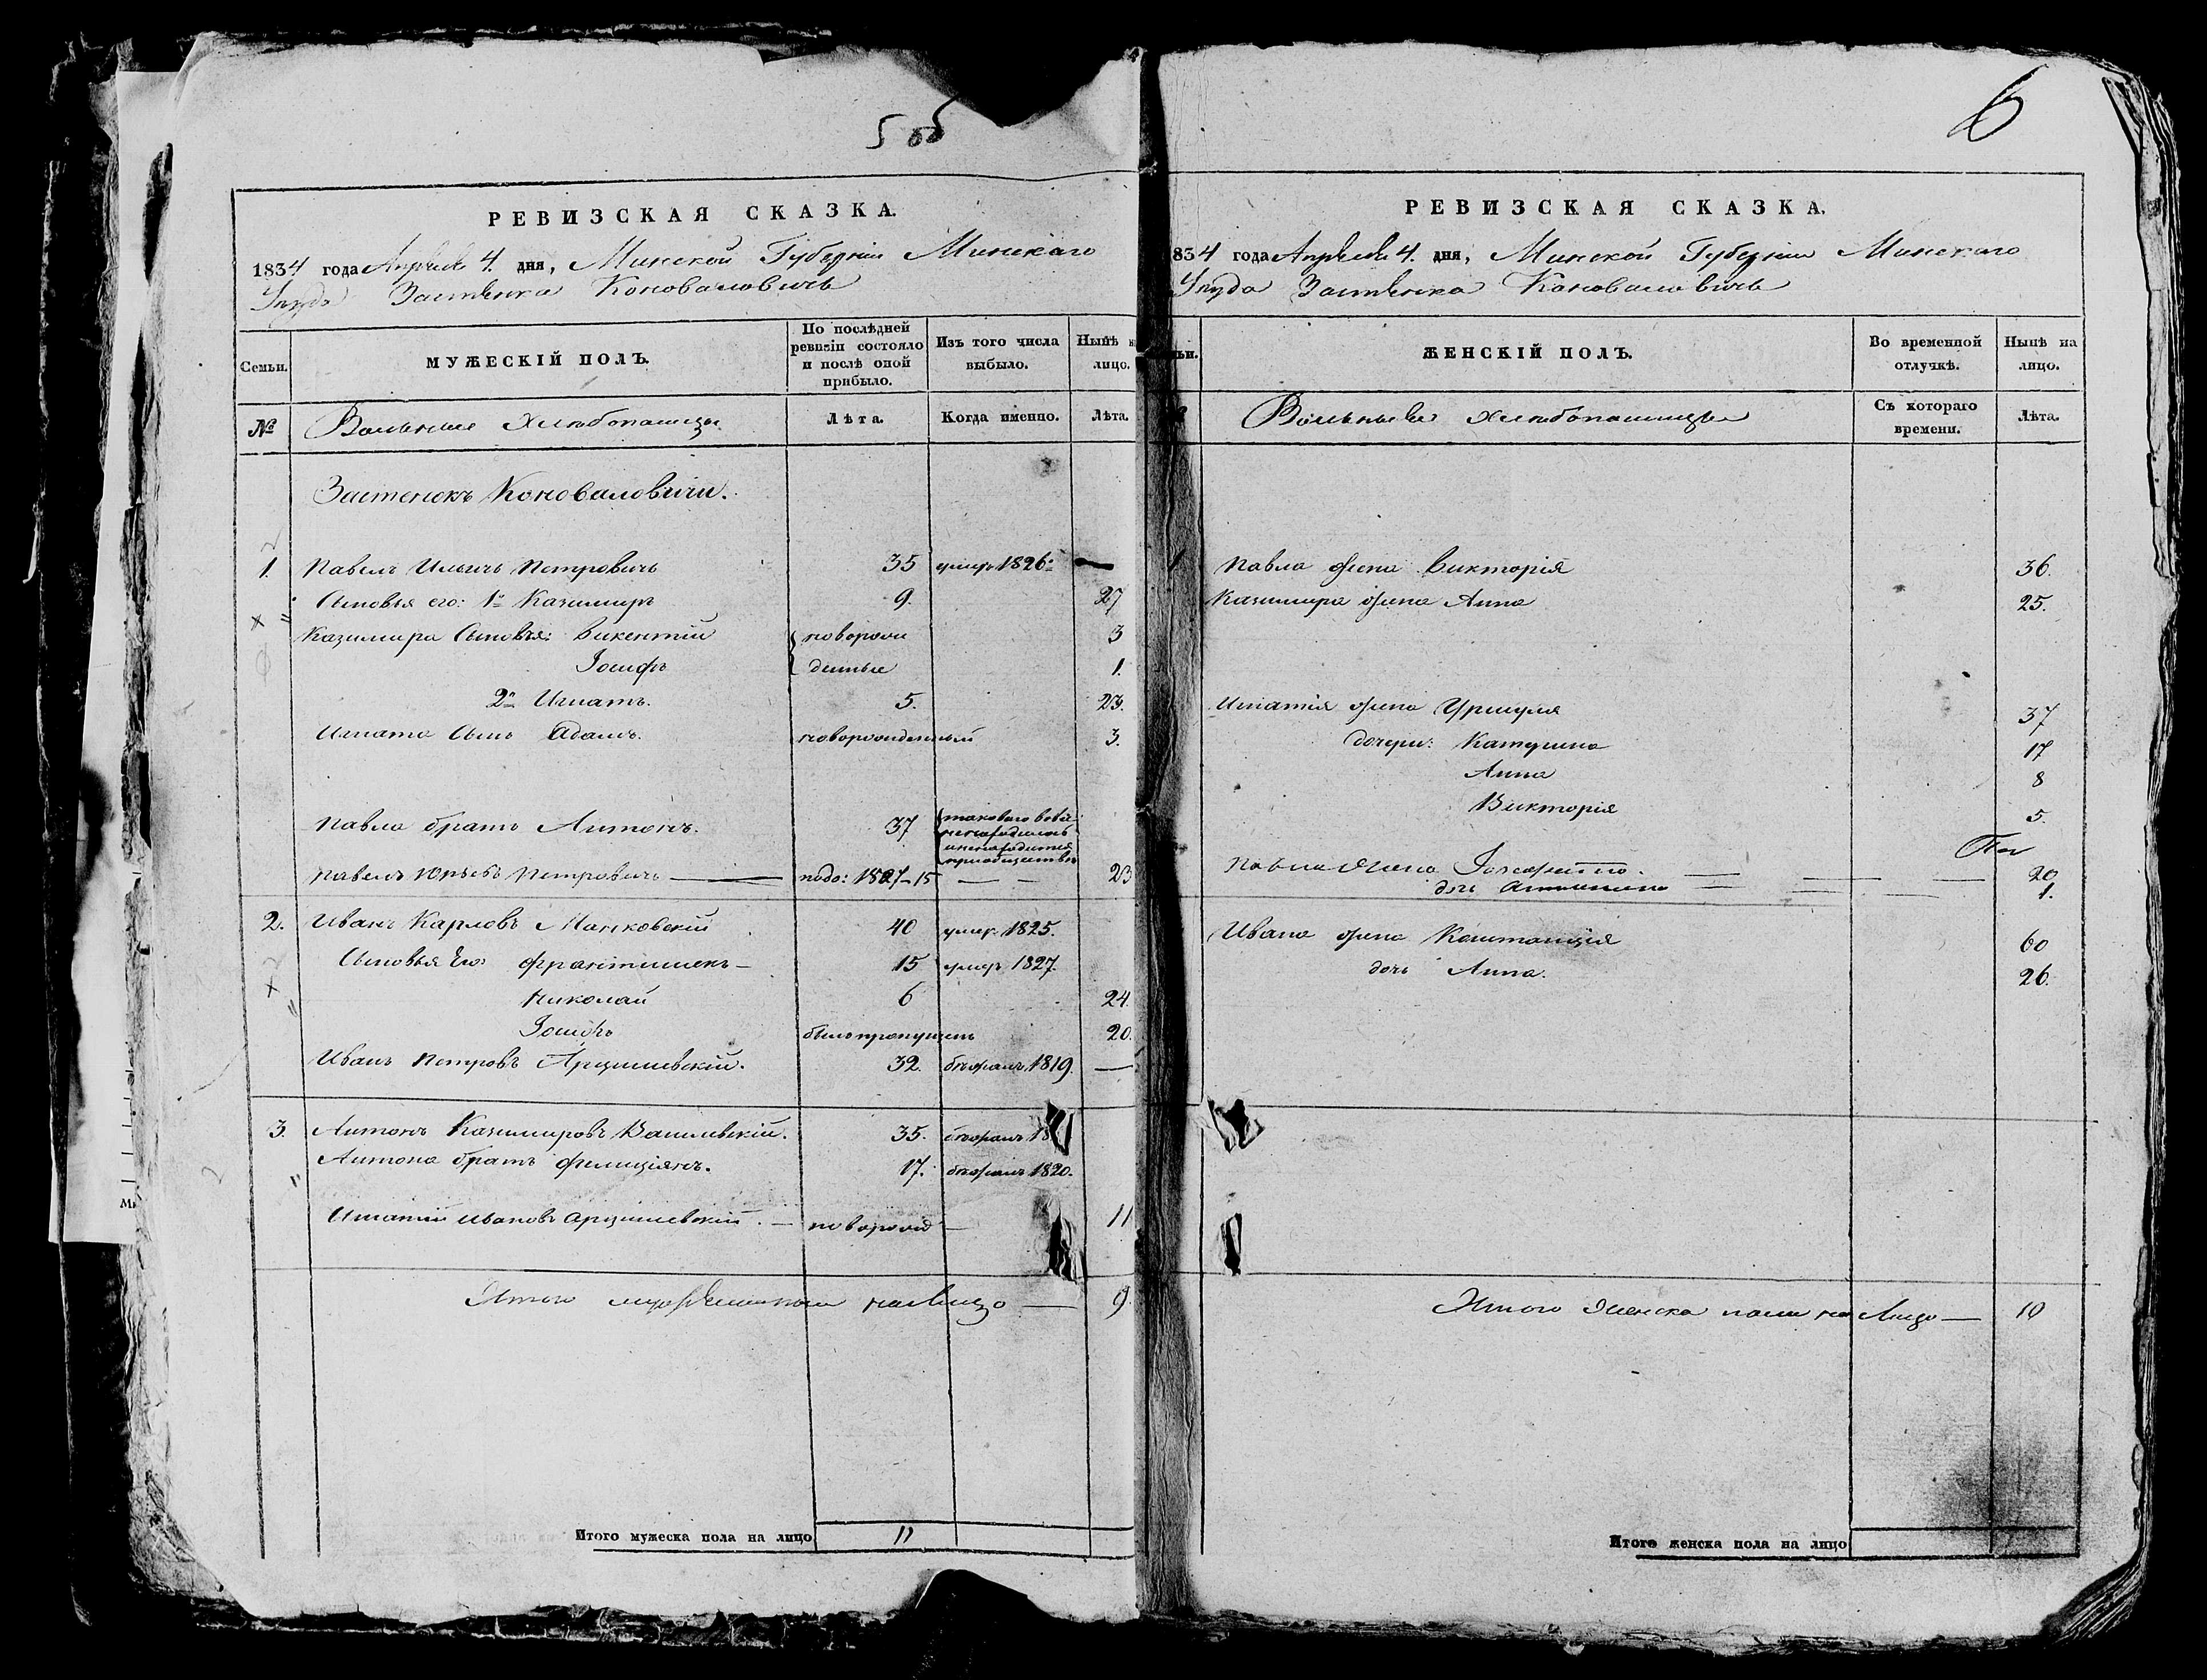 5 об
РЕВИЗСКАЯ СКАЗКА.
1834 года Апреля 4. дня, Минской Губерніи Минскаго
Уезда Застѣнка Коноваловичь
Семьи. МУЖЕСКІЙ ПОЛЪ. По послѣдней ревизіи состояло и послѣ оной прибыло. Изъ того числа выбыло. Нынѣ на лицо.
№ Вольные Хлебопашцы Лѣта. Когда именно. Лѣта.
Застенокъ Коноваловичи.
1. Павелъ Ильичъ Петровичъ 35 умеръ 1826. —
Сыновья его: 1й Казимиръ 9. 27
Казимира Сыновья: Викентій новорож 3
Іосифъ денные 1.
2й Игнатъ. 5. 23.
Игната Сынъ Адамъ. новорожденный 3.
Павла братъ Антонъ. 37 таковаго
Павелъ Юрьевъ Петровичъ — 1827-15 — — 23
2. Иванъ Карловъ Маньковскій 40 умер. 1825.
Сыновья Его: Францишекъ — 15 умеръ 1827.
Николай 6 24.
Іосифъ былъ пропущенъ 20.
Иванъ Петровъ Арцишевскій. 32. бѣжалъ 1819. —
3. Антонъ Казимировъ Василевскій. 35. бѣжалъ 18
Антона братъ Фелиціянъ. 17. бѣжалъ 1820.
Игнатій Ивановъ Арцишевскій. — новорожд — 11
Итого на Лицо — 9
Итого мужеска пола на лицо 11
6
РЕВИЗСКАЯ СКАЗКА.
834 года Апреля 4. дня, Минской Губерніи Минскаго
Уезда Застѣнка Коноваловичь
ьи. ЖЕНСКІЙ ПОЛЪ. Во временной отлучкѣ. Нынѣ на лицо.
Вольные Хлебопашцы Съ котораго времени. Лѣта.
1 Павла жена Викторія 36.
Казимира жена Анна 25.
Игнатія жена Уршуля 37
дочери: Катерина 17
Анна 8
Викторія 5.
Павла Жена — — — 20
дочь — — 1.
Ивана жена Констанція 60
дочь Анна. 26.
Итого Женска пола на Лицо — 10
Итого женска пола на лицо